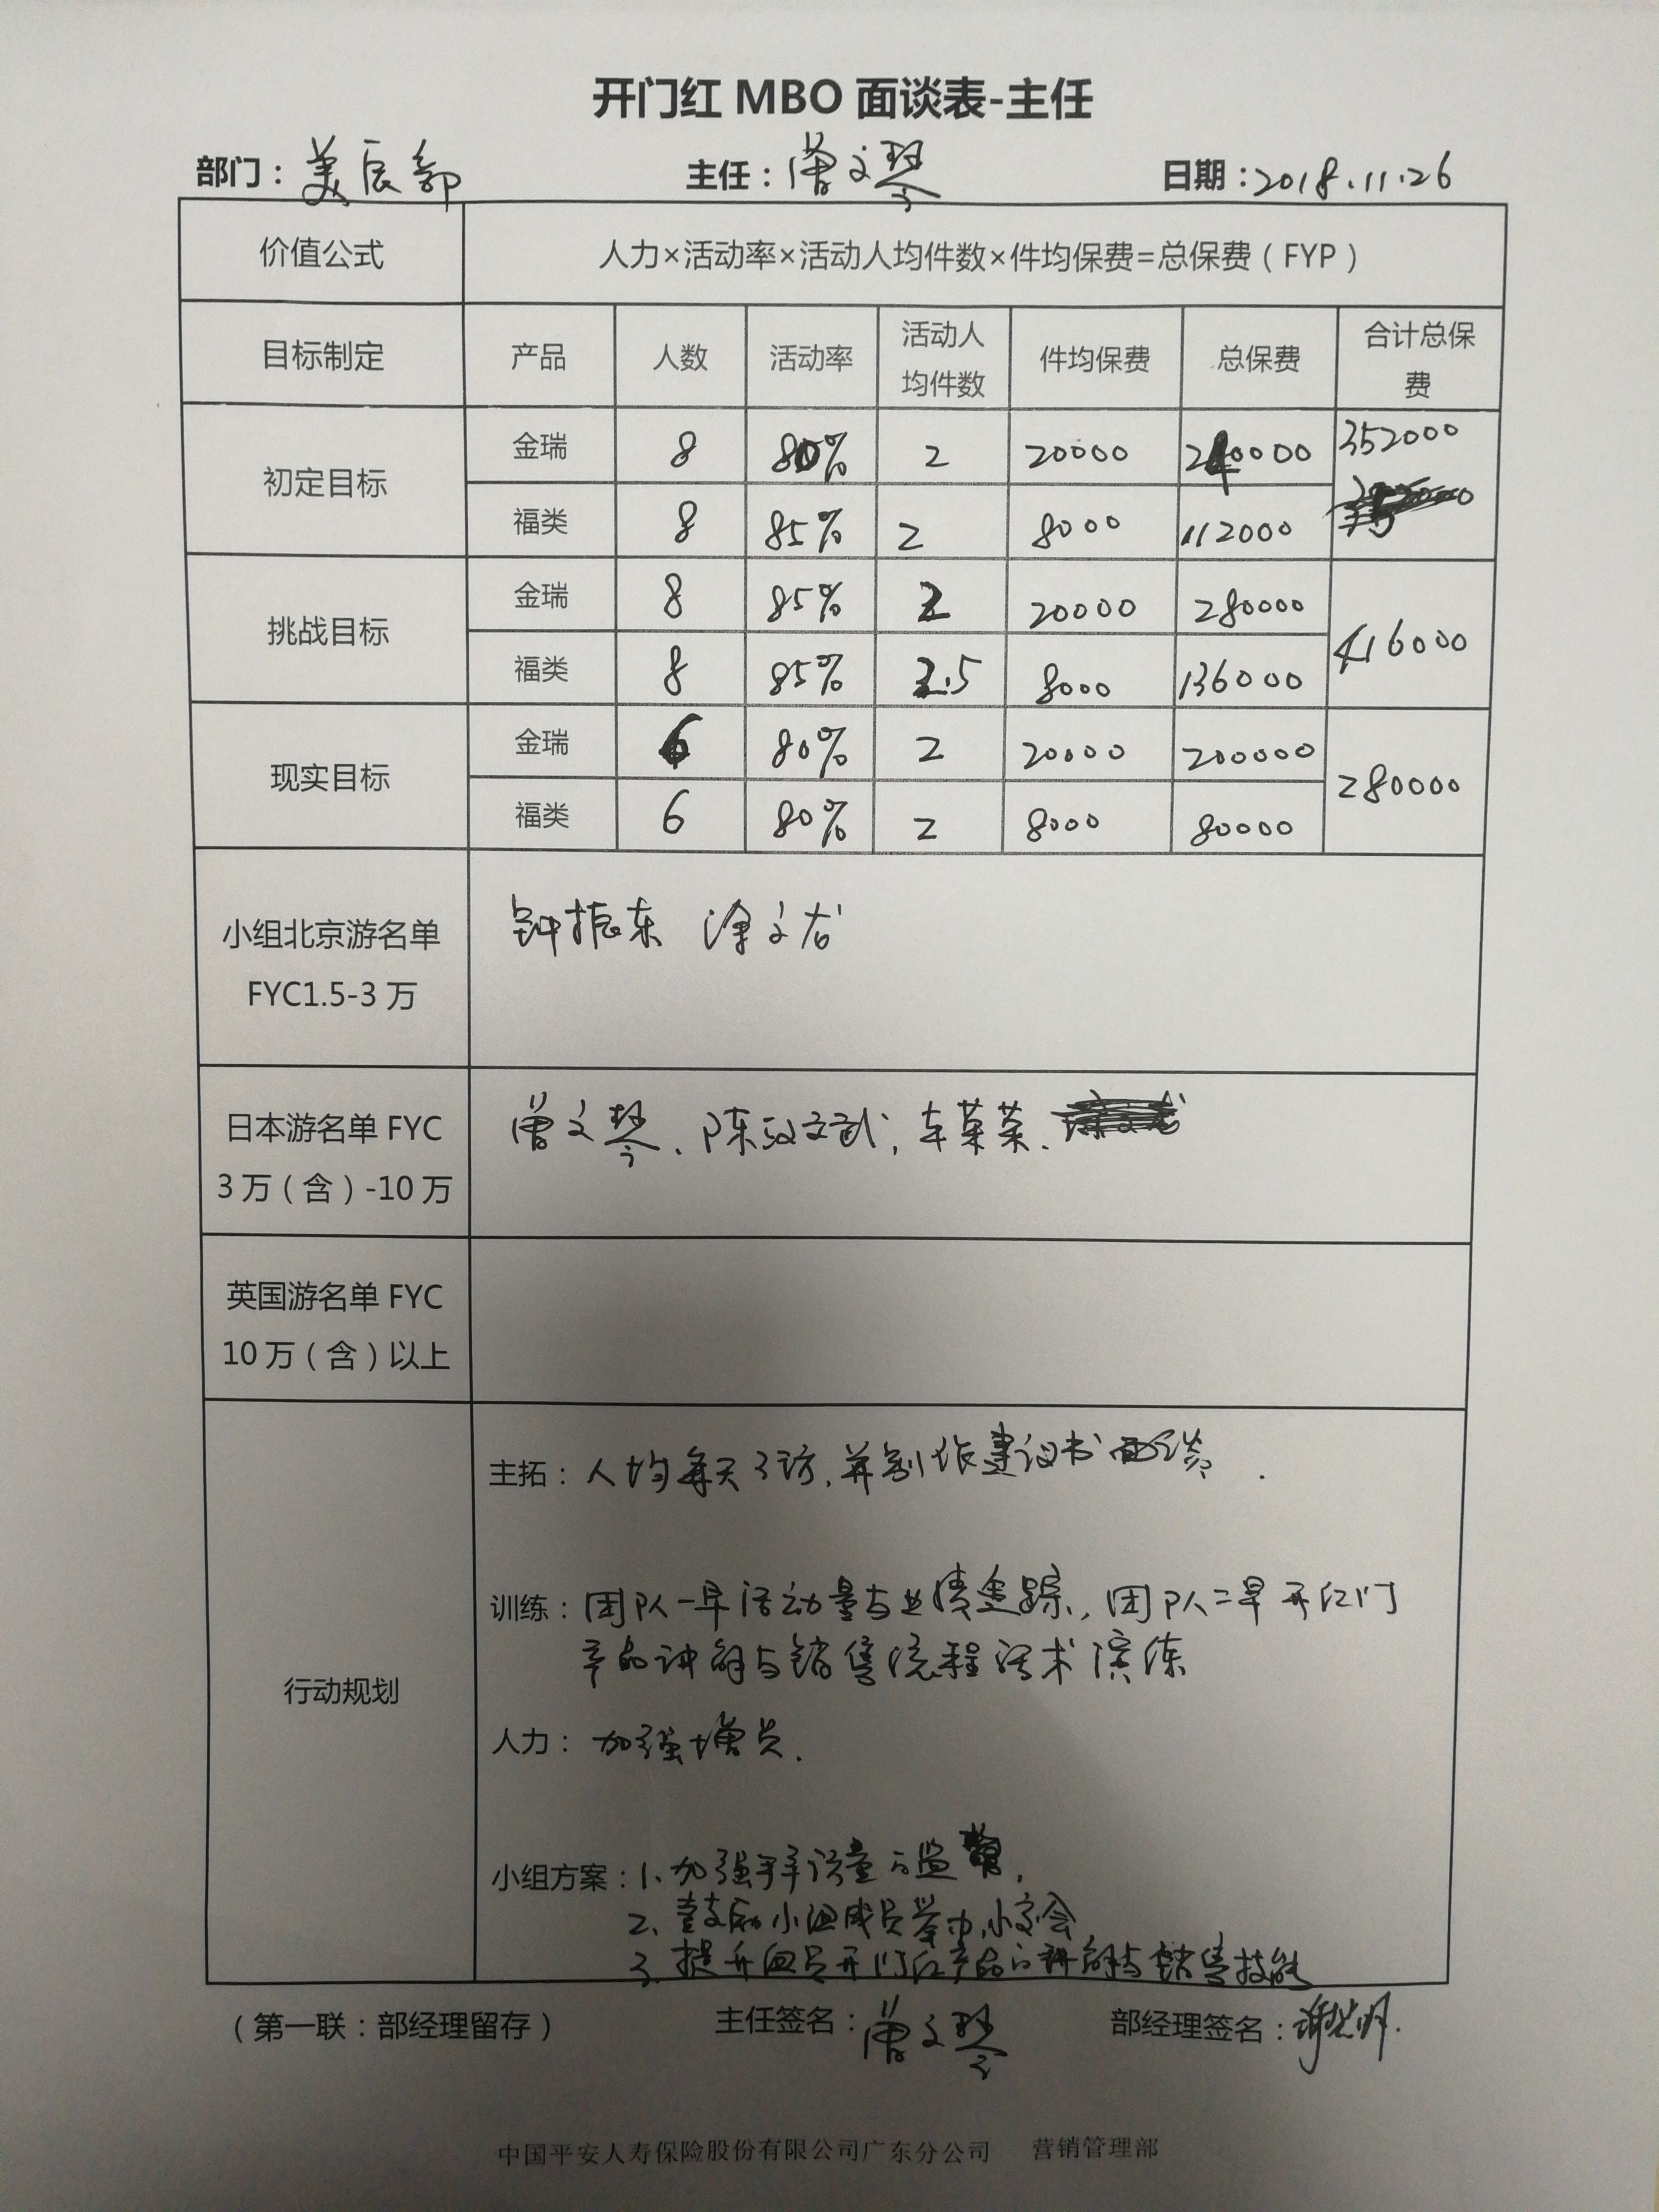 开门红 MBO 面谈表-主任
部门：美辰部 主任：曾文琴 日期：2018.11.26
价值公式 人力×活动率×活动人均件数×件均保费=总保费（FYP）
目标制定 产品 人数 活动率 活动人均件数 件均保费 总保费 合计总保费
初定目标 金瑞 8 80% 2 20000 240000 352000
福类 8 85% 2 8000 112000
挑战目标 金瑞 8 85% 2 20000 280000 416000
福类 8 85% 2.5 8000 136000
现实目标 金瑞 6 80% 2 20000 200000 280000
福类 6 80% 2 8000 80000
小组北京游名单 钟振东 涂文龙
FYC1.5-3 万
日本游名单 FYC 曾文琴、陈政文武，车菜菜、
3 万（含）-10 万
英国游名单 FYC
10 万（含）以上
行动规划
主拓：人均每天3访，并制作建议书面谈.
训练：团队一早活动量与业绩追踪，团队二早开红门
产品讲解与销售流程话术演练
人力：加强增员.
小组方案：1、加强拜访量的监督，
2、鼓励小组成员举办小交会
3、提升组员开门红产品的讲解与销售技能
（第一联：部经理留存） 主任签名：曾文琴 部经理签名：
中国平安人寿保险股份有限公司广东分公司 营销管理部